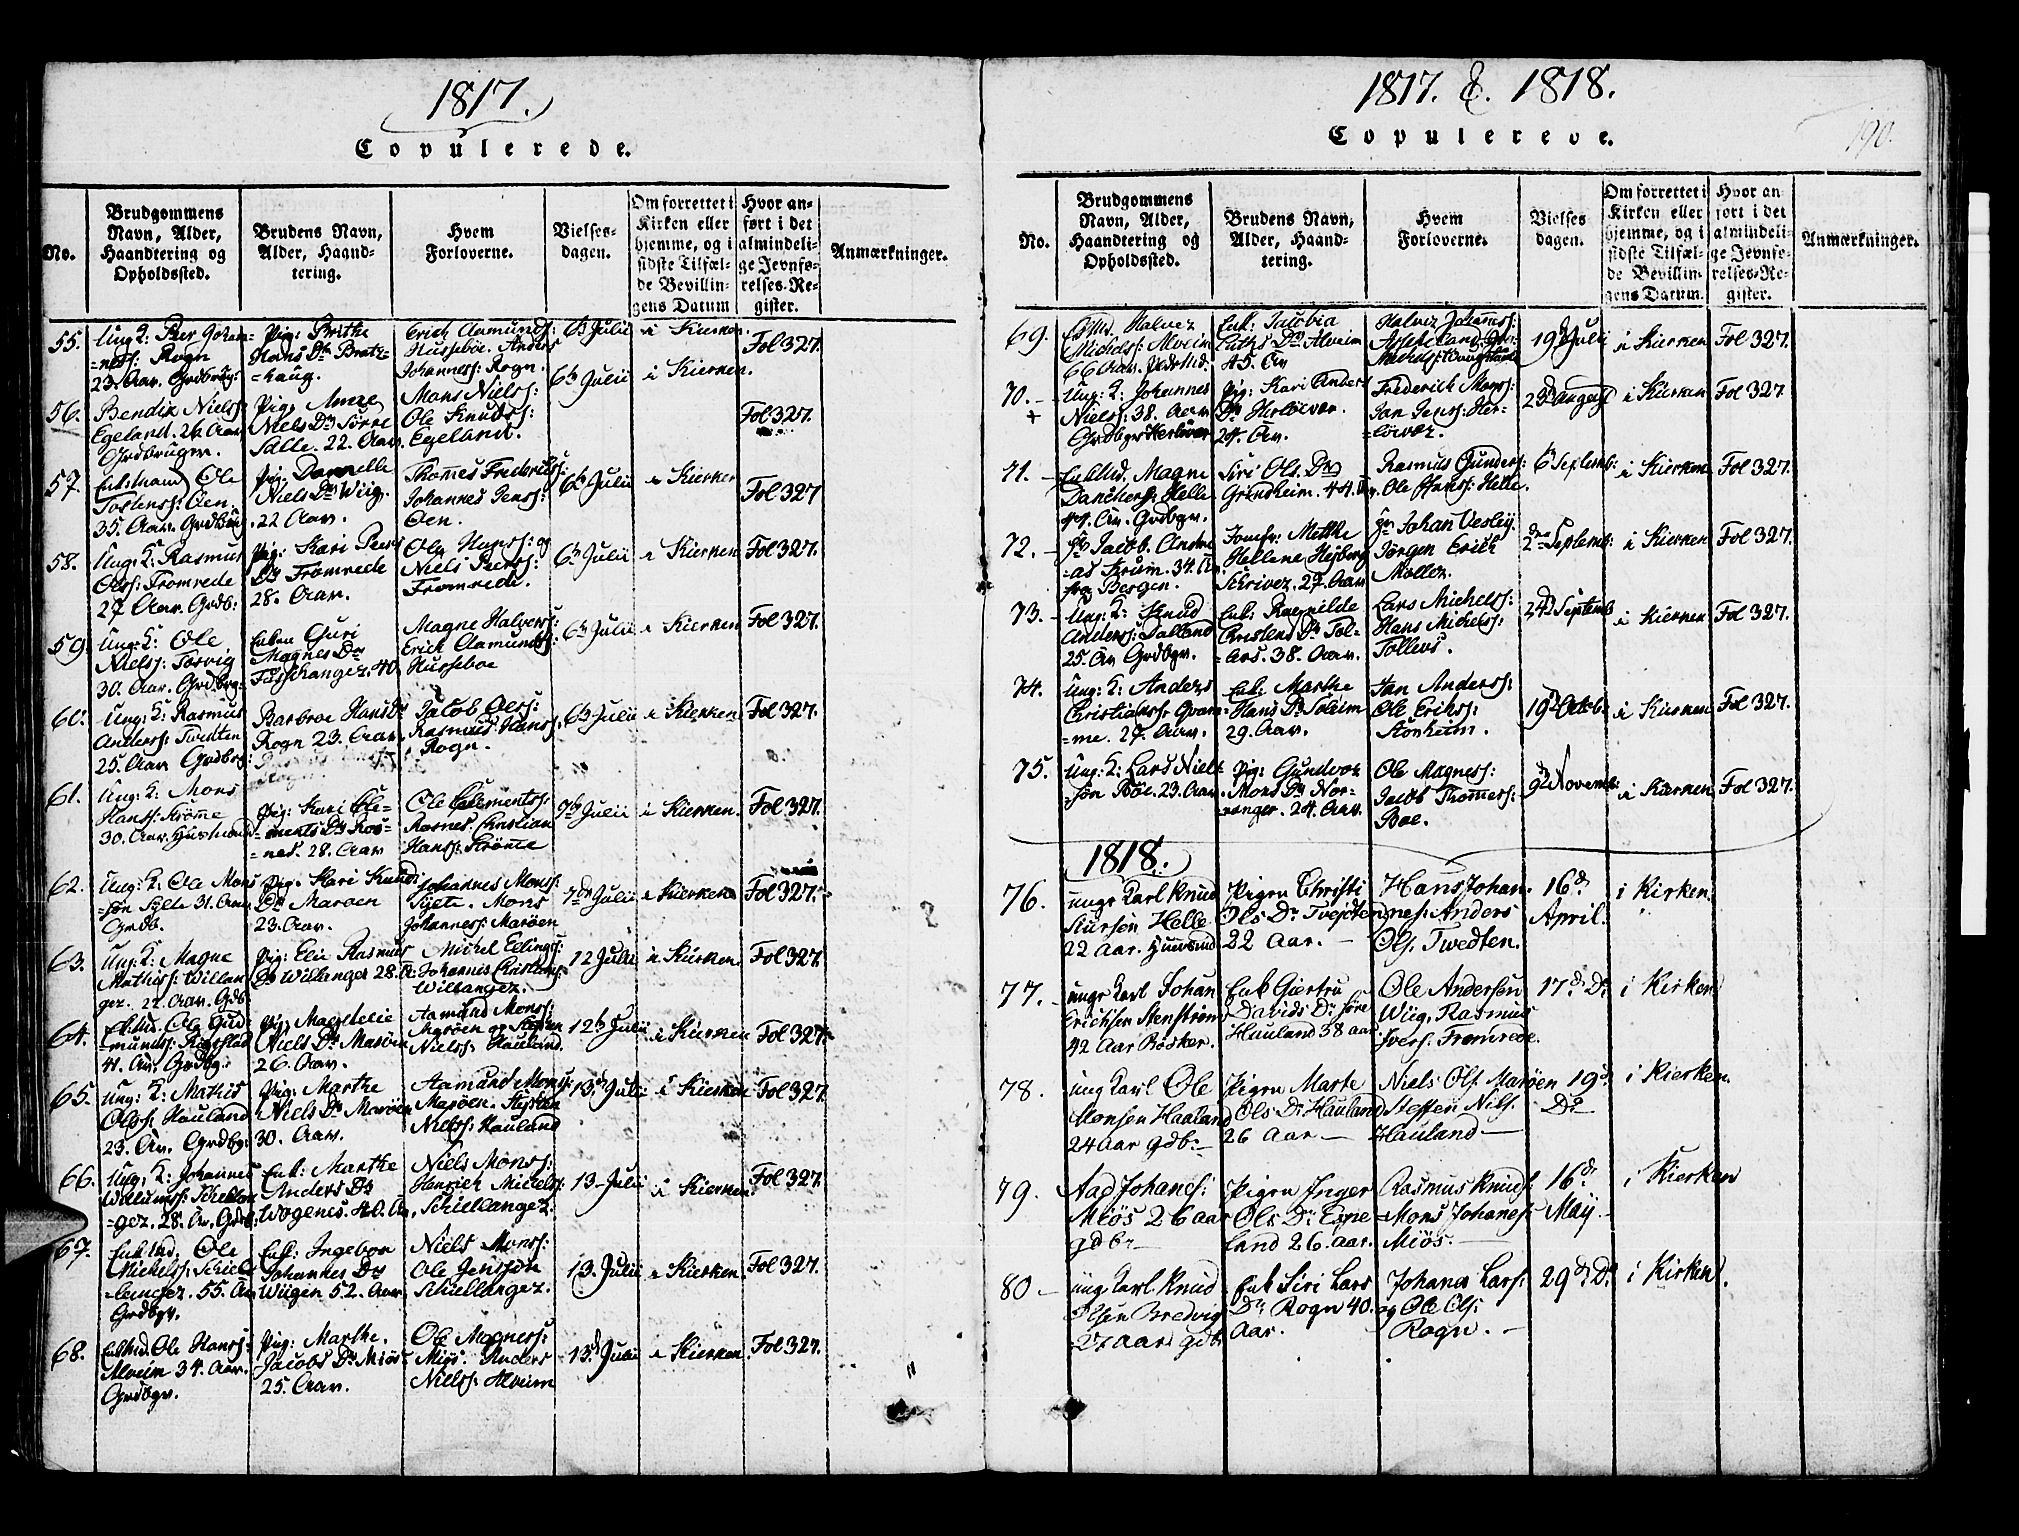 1817.
Copulerede.
No.
Brudgommens
Navn, Alder,
Haandtering og
Opholdssted.
Brudens Navn,
Alder, Haand-
tering.
Hvem
Forloverne.
Vielses-
dagen.
Om forrettet i
Kirken eller
hjemme, og i
sidste Tilfæl-
de Bevillin-
gens Datum
Hvor an-
ført i det
almindeli-
ge Jevnfø-
relses-Re-
gister.
Anmærkninger.
55.
Ung: K: Peer Johan-
=ness: Rogn
23. Aar. Grdbrug:
Pig: Brithe
Hans Dr Bratz-
=haug.
Erich Aamunds:
Husseböe. Anders
Johanness: Rogn.
6h Julii
i Kierken.
Fol 327.
56.
Bendix Niels:
Egeland. 26 Aar,
Grdbruger.
Pig: Anne
Niels Dr Sörre
Salle. 22. Aar.
Mons Niels:
Ole Knuds:
Egeland.
6h Julii
i Kierken.
Fol 327.
57.
Enkemand Ole
Tostens: Öen.
35. Aar. Grdbrug
Pig. Dannelle
Niels Dr Wiig.
22 Aar.
Thomes Friderichs:
Johannes Jens:
Öen.
6h Julii
i Kierken
Fol 327
58.
Ung: K: Rasmus
Oles: Fromrede
27 Aar. Grdb:
Pig: Kari Peers
Dr Fromrede
28. Aar.
Ole Hans: og
Niels Peers:
Fromrede.
6h Julii
i Kierken
Fol 327.
59.
Ung: K: Ole
Niels: Torvig
30. Aar. Grdbrg:
Enken Guri
Magnes Dr
Fusschanger. 40.
Magne Halvers:
Erich Aamunds:
Husseboe
6h Julii
i Kierken
Fol 327.
60.
Ung: K: Rasmus
Anders: Twedten
25. Aar Grdbrg:
Barbroe Hans Dr
Rogn 23. Aar.
Jacob Oles:
Rasmus Hans:
Rogn.
6h Julii
i Kierken
Fol 327.
61.
Ung: K: Mons
Hans: Krömme
30. Aar. Huusmand
Pig: Kari Cle-
=ments Dr Ros-
=nes. 28. Aar
Ole Clements:
Rosnes. Christian
Hans: Krömme
7h Julii
i Kierken
Fol 327.
62.
Ung: K: Ole Mons
=sön Sylte 31. Aar
Grdb.
Pig. Kari Knuds
Dr Maröen
23. Aar.
Johannes Mons:
Syete. Mons
Johannes: Maröen
7de Julii
i Kierken
Fol 327.
63.
Ung: K: Magne
Mathis: Willan
ger. 22. Aar. Gdb
Pig: Elie Rasmus
Dr Willanger 28. A:
Michel Ellings:
Johannes Christians:
Willanger.
12 Julii
i Kierken
Fol 327.
64.
Ole Gud-
=munds:
41. Aar. Grdbg:
Pig. Magdelie
Niels Dr Maröen
26. Aar.
Aamund Mons:
Maröen og Steffen
Niels: Hauland.
12h Julii
i Kierken
Fol 327.
65.
Ung: K: Mathis
Oles: Hauland
23. Aar. Grdbg:
Pig: Marthe
Niels Dr Maröen
30. Aar.
Aamund Mons:
Maröen. Steffen
Niels: Hauland
13d Julii
i Kierken
Fol 327
66.
Ung: K: Johannes
Willums: Schellan
=ger. 28. Aar. Grdb.
Enk: Marthe
Anders Dr
Wogenes. 40. Aar,
Niels Mons:
Henrich Michels:
Schiellanger.
13- Julii
i Kierken
Fol 327.
67.
Enkmd. Ole
Michels: Schiel
=langer. 55. Aar
Grdbgr.
Enk: Ingebor
Johannes Dr
Wiigen 52. Aar
Niels Mons:
Ole Jenssön
Schiellanger.
13. Julii
i Kierken.
Fol 327.
68.
Enkmd. Ole Hans:
Alveim 34. Aar.
Grdbgr.
Pig: Marthe.
Jacobs Dr Miös
25. Aar.
Ole Magnes:
Miös. Anders
Niels: Alveim
13d Julii
i Kierken
Fol 327.
1817. & 1818.
Copulerede.
190.
No.
Brudgommens
Navn, Alder,
Haandtering og
Opholdssted.
Brudens Navn,
Alder, Haand-
tering.
Hvem
Forloverne.
Vielses
dagen.
Om forrettet i
Kirken eller
hjemme, og i
sidste Tilfæl-
de Bevillin-
gens Datum.
Hvor an
ført i det
almindeli-
ge Jevnfø-
relses-Re-
gister.
Anmærkninger.
69.
Halver
Michels: Alveim
66 Aar.
Enk: Jacobia
Dr Alveim
45. Aar
Halver Johannes:
19d Julii
i Kierken
Fol 327.
70. -
+
Ung: K: Johannes
Niels: 38. Aar
Grdbgr Herlöver
Pig: Kari Anders
Dr Herlöver.
24. Aar.
Frederich Mons:
Jan Jens: Her-
=löver.
23d August
i Kierken
Fol 327
71. -
Enkmd. Magne
Danchers: Helle
44. Aar. Grdbgr.
Siri Ols Dr
Grindheim. 44. A
Rasmus Gunders:
Ole Hans: Helle.
6h Septemb:
i Kierken
Fol 327.
72. -
Hr Jacob Andre
=as Krum. 34. Ar
fra Bergen.
Jomfr: Metthe
Hellene Hejberg
Schriver. 27. Aar
Hr Johan Vesley.
Jörgen Erich
Möller.
2den Septemb:
i Kierken
Fol 327.
73. -
Ung: K: Knud
Anders: Salland
25. Ar Grdbgr.
Enk: Ragnilde
Christens Dr Tol-
=levs. 38. Aar.
Lars Michels:
Hans Michels:
Tollevs.
24d Septemb
i Kierken
Fol 327.
74.
Ung: K: Anders
Christians: Qvam-
=me. 27. Aar.
Enk: Marthe
Hans Dr Soleim
29. Aar.
Jan Anders:
Ole Eriks:
Stonheim.
19d Octob:
i Kierken
Fol 327.
75.
Ung: K: Lars Niels
=sön Böe. 23. Aar
Pig: Gundvor
Mons Dr Nor-
=anger. 24. Aar.
Ole Magnes:
Jacob Thommes:
Boe.
9d Novemb:
i Kierken
Fol 327.
1818.
76.
ungr Karl Knud
Siursen Helle
22 Aar. Huusmd
Pigen Christi
Ols Dr Tvejten
22 Aar. -
Hans Johan-
nes: Anders
Ols: Twedten.
16d
April.
i Kirken.
77. -
ungr Karl Johan
Erichsen Stenström
42 Aar Bösker.
Enk Giertru
Davids Dr
Hauland 38 aar
Ole Andersen
Wiig, Rasmus
Ivers: Fromrede.
17d Do
i Kirken
78.
ung Karl Ole
Monsen Haaland
24 Aar gdb. -
Pigen Marte
Ols Dr Hauland
26 Aar -
Niels Ols: Maröen
Steffen Nils:
Hauland -
19d
Do
i Kierken.
79.
Aad Johanes:
Miös 26 aar
gdbr -
Pigen Inger
Ols Dr Espe
land 26. aar.
Rasmus Knuds:
Mons Johanes:
Miös. -
16d
May. -
i Kierken
80 -
ung Karl Knud
Olsen Bredvig
27 Aar gdb
Enk Siri Lars
Dr Rogn 40.
Aar.
Johanes Lars:
og Ole Ols:
Rogn. -
29d Do
i Kirken.